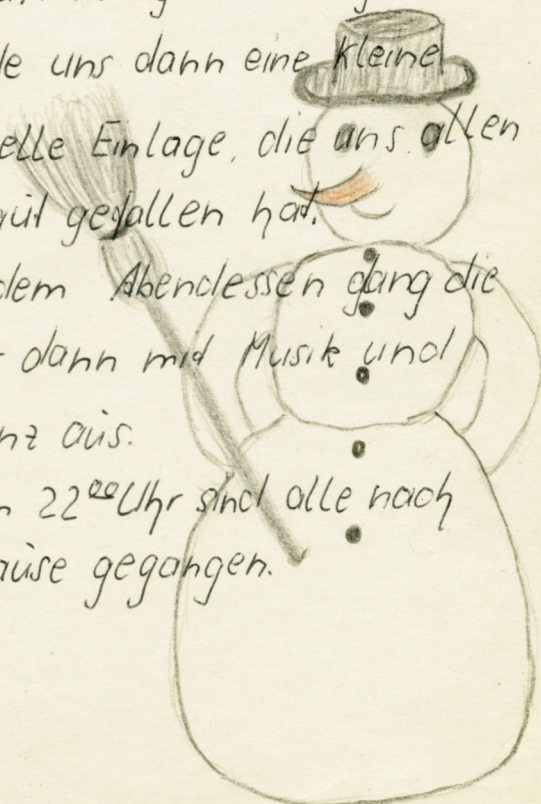 de uns dann eine kleine
elle Einlage, die uns allen
gut gefallen hat.
dem Abendessen gang die
dann mit Musik und
nz aus.
22⁰⁰ Uhr sind alle nach
ause gegangen.